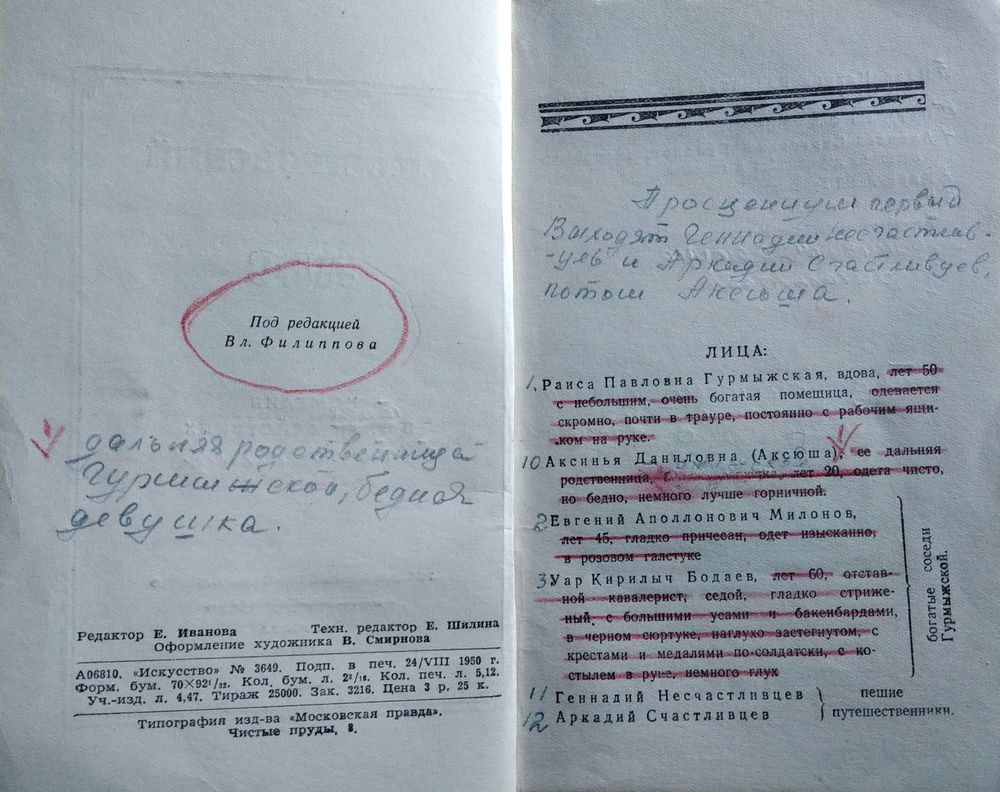 Под редакцией
Вл. Филиппова
дальняя родственница
Гурмыжской, бедная
девушка.
Редактор Е. Иванова Техн. редактор Е. Шилина
Оформление художника В. Смирнова
А06810. «Искусство» № 3649. Подп. в печ. 24/VIII 1950 г.
Форм. бум. 70×92¹/₃₂. Кол. бум. л. 2⁹/₁₆. Кол. печ. л. 5,12.
Уч.-изд. л. 4,47. Тираж 25000. Зак. 3216. Цена 3 р. 25 к.
Типография изд-ва «Московская правда».
Чистые пруды, 8.
Просцениум первый
Выходят Геннадий Несчастлив-
-цев и Аркадий Счастливцев,
потом Аксюша.
ЛИЦА:
1, Раиса Павловна Гурмыжская, вдова, лет 50
с небольшим, очень богатая помещица, одевается
скромно, почти в трауре, постоянно с рабочим ящи-
ком на руке.
10 Аксинья Даниловна (Аксюша), ее дальняя
родственница, лет 20, одета чисто,
но бедно, немного лучше горничной.
2 Евгений Аполлонович Милонов,
лет 45, гладко причесан, одет изысканно,
в розовом галстуке
3 Уар Кирилыч Бодаев, лет 60, отстав-
ной кавалерист, седой, гладко стриже-
ный, с большими усами и бакенбардами,
в черном сюртуке, наглухо застегнутом, с
крестами и медалями по-солдатски, с ко-
стылем в руке, немного глух
богатые соседи
Гурмыжской.
11 Геннадий Несчастливцев
12 Аркадий Счастливцев
пешие
путешественники.